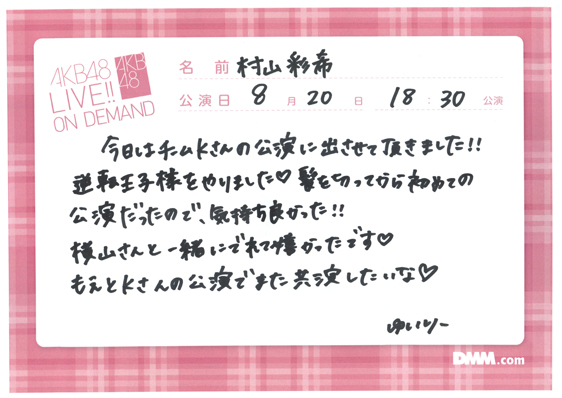 AKB48
LIVE!!
ON DEMAND
AKB
48
名 前 村山彩希
公演日 8 月 20 日 18 : 30 公演
今日はチームKさんの公演に出させて頂きました!!
逆転王子様をやりました♡ 髪を切ってから初めての
公演だったので、気持ち良かった!!
横山さんと一緒にでれて嬉かったです♡
もえとKさんの公演でまた共演したいな♡
ゆいりー
DMM.com